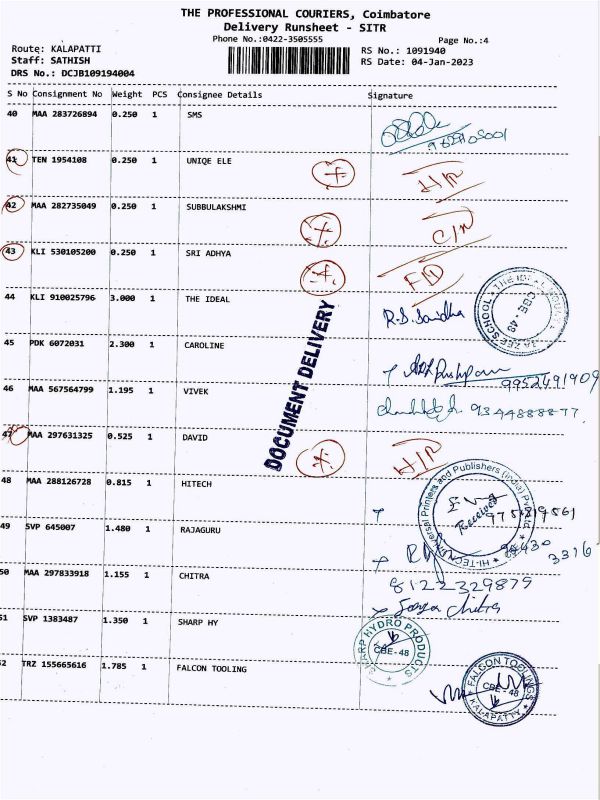 THE PROFESSIONAL COURIERS, Coimbatore
Delivery Runsheet - SITR
Phone No.:0422-3505555
Page No.:4
Route: KALAPATTI
RS No.: 1091940
Staff: SATHISH
RS Date: 04-Jan-2023
DRS No.: DCJB109194004
S No Consignment No Weight PCS Consignee Details Signature
40 MAA 283726894 0.250 1 SMS
41 TEN 1954108 0.250 1 UNIQE ELE
42 MAA 282735049 0.250 1 SUBBULAKSHMI
43 KLI 530105200 0.250 1 SRI ADHYA
44 KLI 910025796 3.000 1 THE IDEAL
CBE - 48
45 PDK 6072031 2.300 1 CAROLINE
9952491909
46 MAA 567564799 1.195 1 VIVEK
9344888877
DOCUMENT DELIVERY
47 MAA 297631325 0.525 1 DAVID
48 MAA 288126728 0.815 1 HITECH
Received
49 SVP 645007 1.480 1 RAJAGURU
3316
50 MAA 297833918 1.155 1 CHITRA
8122329879
Chitra
51 SVP 1383487 1.350 1 SHARP HY
SHARP HYDRO PRODUCTS
CBE - 48
52 TRZ 155665616 1.785 1 FALCON TOOLING
FALCON TOOLINGS
CBE - 48
KALAPATTY